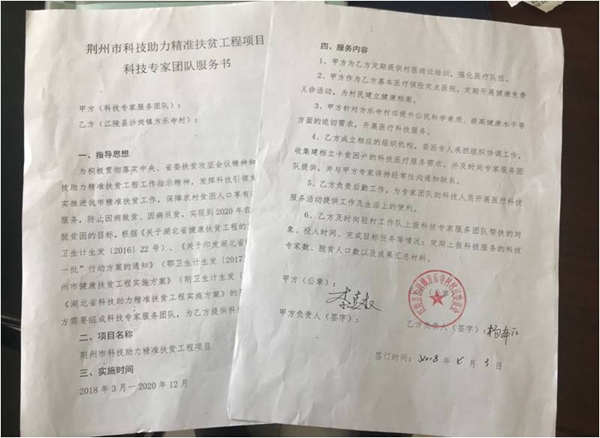 荆州市科技助力精准扶贫工程项目
科技专家团队服务书
甲方（科技专家服务团队）：
乙方（江陵县沙岗镇方乐寺村）：
一、指导思想
为积极贯彻落实中央、省委扶贫攻坚会议精神和
技助力精准扶贫工程工作指示精神，发挥科技引领
实施推进我市精准扶贫工作，保障农村贫困人口享有
服务，防止因病致贫、因病返贫，实现到 2020 年农
脱贫困的目标，根据《关于湖北省健康扶贫工程的
卫生计生发〔2016〕22 号）、《关于印发湖北省
一批”行动方案的通知》（鄂卫生计生发〔2017
州市健康扶贫工程实施方案》（荆卫生计生发
《湖北省科技助力精准扶贫工程实施方案》的
方需要组成科技专家服务团队，为乙方提供科
二、项目名称
荆州市科技助力精准扶贫工程项目
三、实施时间
2018 年 3 月—2020 年 12 月
四、服务内容
1、甲方为乙方定期提供村医岗位培训，强化医疗队伍。
2、甲方作为乙方基本医疗保险定点医院，定期开展健康免费
义诊活动，为村民建立健康档案。
3、甲方针对方乐寺村在提升公民科学素质、提高健康水平等
方面的迫切需求，开展医疗科技服务。
4、乙方成立相应的组织机构，委派专人承担组织协调工作，
收集建档立卡贫困户的科技医疗服务需求，并及时向专家服务团
队提供，并与甲方专家保持经常性沟通联系。
5、乙方负责后勤工作，为专家团队的科技人员开展医疗科技
服务活动提供工作及生活上的便利。
6、乙方及时向驻村工作队上报科技专家服务团队帮扶的对
象、投入时间、完成目标任务等情况；定期上报科技服务的科技
专家数、脱贫人口数以及成果汇总材料。
甲方（公章）：
甲方负责人（签字）：
乙方负责人（签字）：
签订时间：2018 年 月 3 日